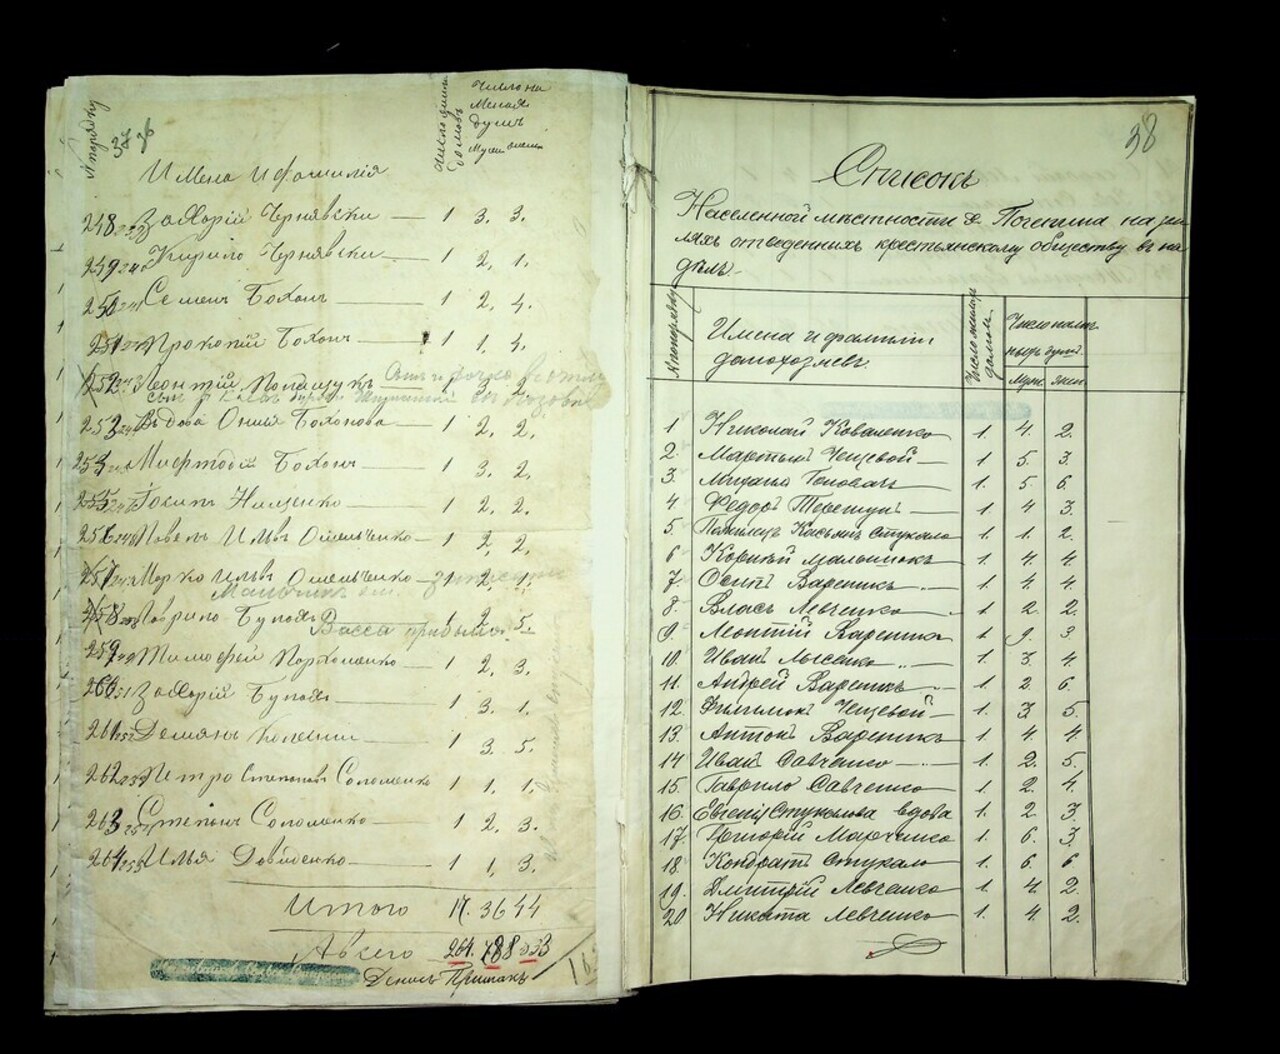 № порядку
37 36
Имена и фамилія
Число жилых домовъ
Число на
Мужс женс
248 Захарій Чернявски — 1 3. 3.
249 Кирило Чернявски 1 2. 1.
250 Семенъ Бохонъ 1 2. 4.
251 Прокопій Бохонъ 1 1. 4.
252 Леонтій Полищукъ 1 3. 2.
253 Вдова Бохонова 1 2. 2.
254 Мифтодій Бохонъ 1 3. 2.
255 Іосипъ Нищенко 1 2. 2.
256 Павелъ Ильи Омельченко — 1 2. 2.
257 Марко Ильи Омельченко — 1 2. 1.
258 Лаврило Васса прибыла 1 2 5.
259 Тимофей Пархоменко 1 2. 3.
260 Захарій 1 3. 1.
261 Демянъ 1 3. 5.
262 Петро Степановъ Соломенко 1 1. 1.
263 Степанъ Соломенко 1 2. 3.
264 Илья Давиденко 1 1. 3.
Итого 17. 36 44
А всего 264. 788
Денисъ
38
Списокъ
Населенной мѣстности д. на зем
ляхъ отведенныхъ крестьянскому обществу въ на
дѣлъ.
№ попорядку
Имена и фамиліи
домохозяевъ.
Число жилых домовъ.
Число налич
ныхъ душъ.
муж. жен.
1 Николай Коваленко 1. 4. 2.
2. Мартынъ Чецевой — 1 5. 3.
3. Михаило Головачъ 1. 5 6.
4. Федоръ Терещукъ 1 4 3.
5. Касьянъ Стукало 1 1. 2.
6 Корнѣй 1. 4. 4.
7. Осипъ Вареникъ 1 4 4.
8. Власъ Левченко 1 2. 2.
9. Леонтій Вареникъ 1 9. 3
10. Иванъ Лысенко 1. 3. 4.
11. Андрей Вареникъ 1. 2. 6.
12. Филимонъ Чецевой — 1. 3 5.
13. Антонъ Вареникъ 1. 4 4
14 Иванъ Савченко 1. 2. 5.
15. Гаврило Савченко 1. 2 4.
16. Евгенія Стукалова вдова 1. 2. 3.
17. Григорій Марченко 1. 6. 3.
18. Кондратъ Стукало 1. 6. 6
19. Дмитрій Левченко 1. 4. 2.
20 Никита Левченко 1. 4. 2.